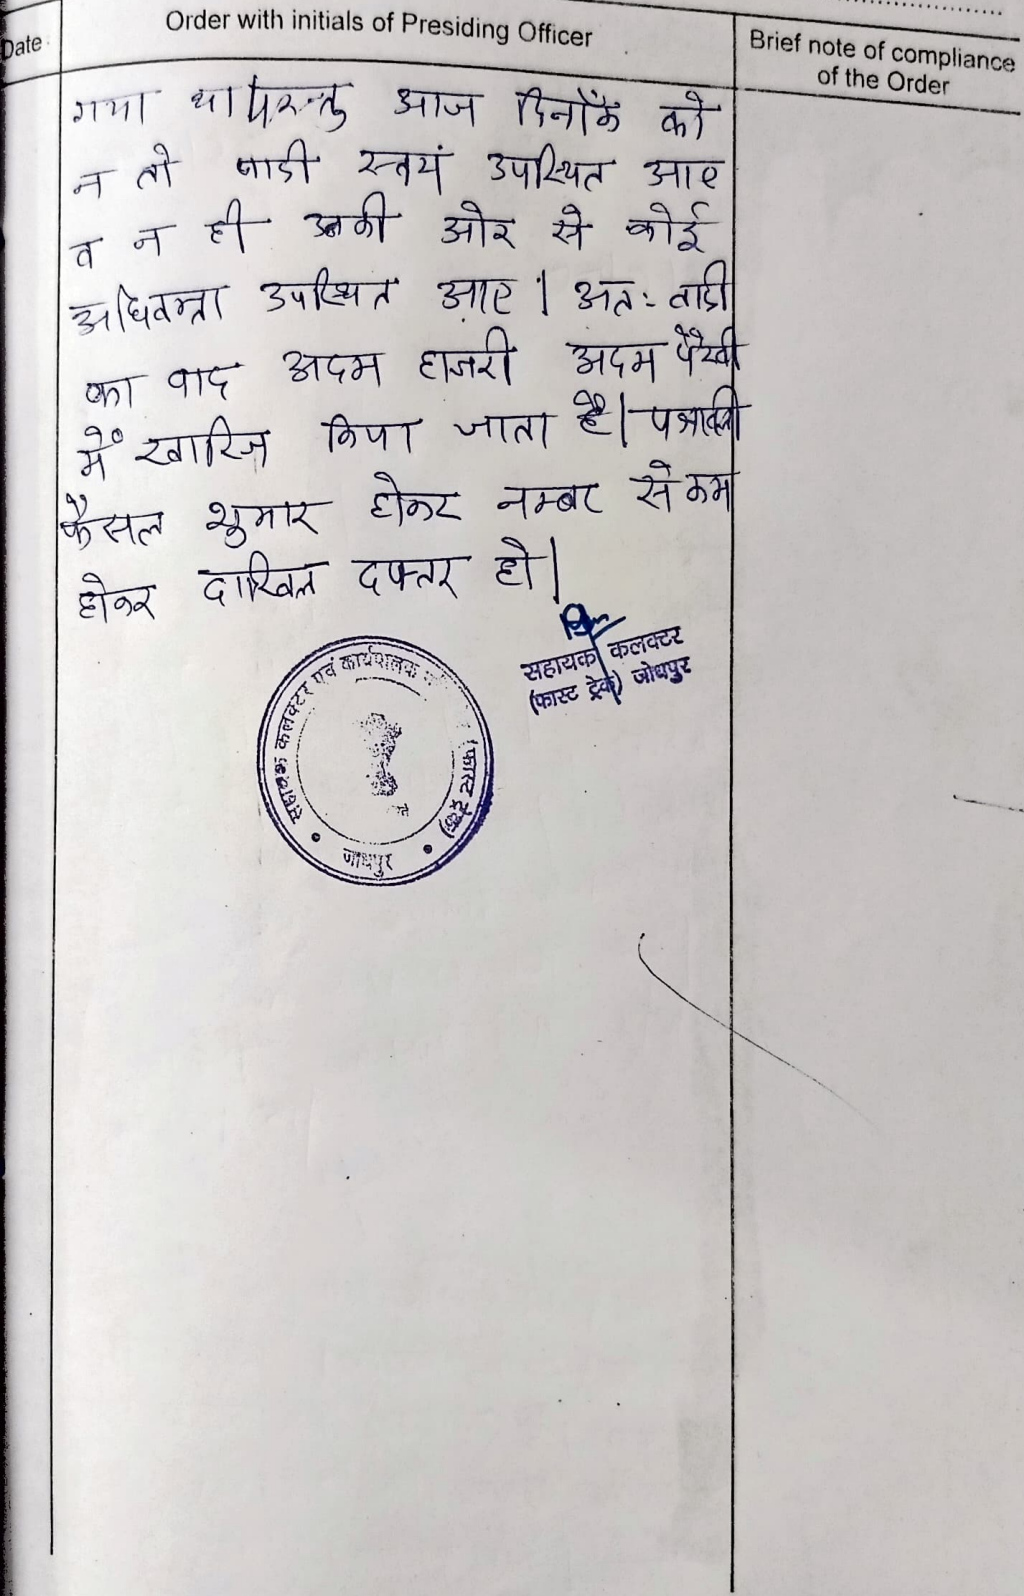 Date
Order with initials of Presiding Officer
Brief note of compliance
of the Order
गया था। परन्तु आज दिनाँक को
न तो वादी स्वयं उपस्थित आए
व न ही उनकी ओर से कोई
अधिवक्ता उपस्थित आए। अत: वादी
का वाद अदम हाजरी अदम पैरवी
में खारिज किया जाता है। पत्रावली
फैसल शुमार होकर नम्बर से कम
होकर दाखिल दफ्तर हो।
सहायक कलक्टर
(फास्ट ट्रेक) जोधपुर
सहायक कलक्टर एवं कार्यपालक
(फास्ट ट्रेक)
जोधपुर